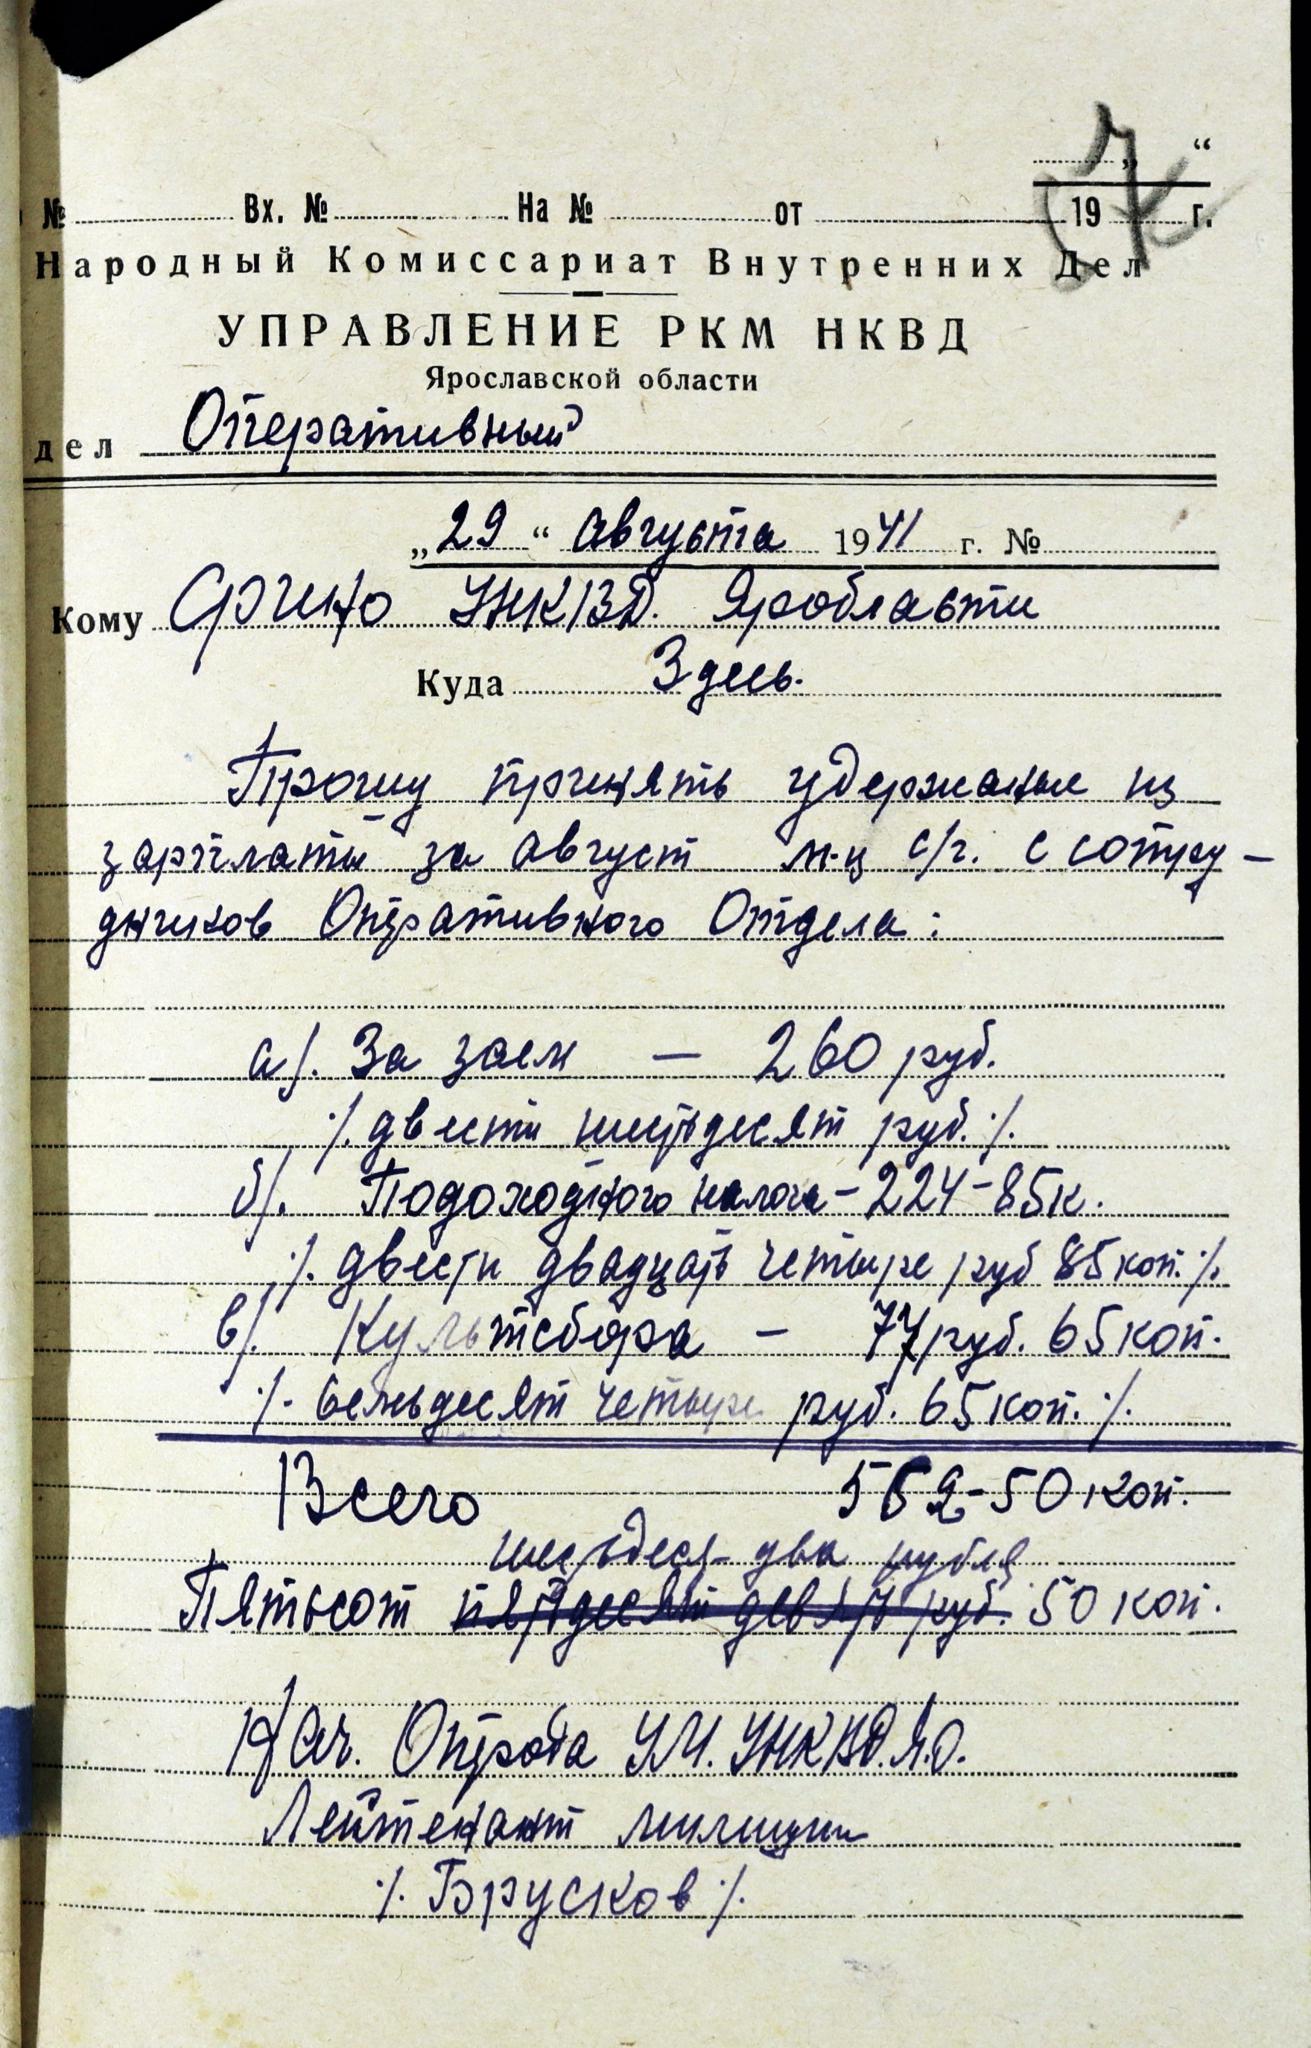 „ “
№ Вх. № На № от 19 г.
Народный Комиссариат Внутренних Дел
УПРАВЛЕНИЕ РКМ НКВД
Ярославской области
дел Оперативный
„29“ августа 1941 г. №
Кому Фрино УНКВД. Яробласти
Куда Здесь.
Прошу принять удержаные из
зарплаты за август м-ц с/г. с сотру-
дников Оперативного Отдела:
а/. За заем — 260 руб.
/. двести шестьдесят руб. /.
б/. Подоходного налога - 224-85к.
/. двести двадцать четыре руб 85 коп. /.
в/. Культсбора - 77 руб. 65 коп.
/. семьдесят четыре руб. 65 коп. /.
Всего 562-50 коп.
шестьдесят два рубля
Пятьсот пятьдесят девять руб. 50 коп.
Нач. Оперотда У.М. УНКВД.Я.О.
Лейтенант милиции
/. Брусков /.